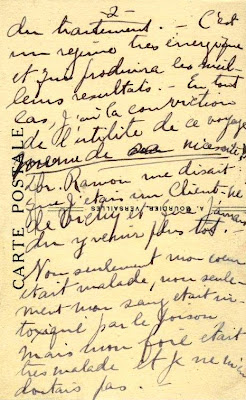 -2-
du traitement. - C'est
un regime tres énergique
et qui produira les meil-
leurs resultats. - En tout
cas, j'ai la conviction
de l'utilité de ce voyage
de sa nécessité.
Dr. Ramon me disait
que j'étais un client de
de Vichy et
du y venir plus tot. -
Non seulement mon coeur
etait malade, non seule-
ment mon sang etait in-
toxiqué par le poison
mais mon foie était
tres malade et je ne m'en
doutais pas. -
CARTE POSTALE
A. BOURDIER VERSAILLES